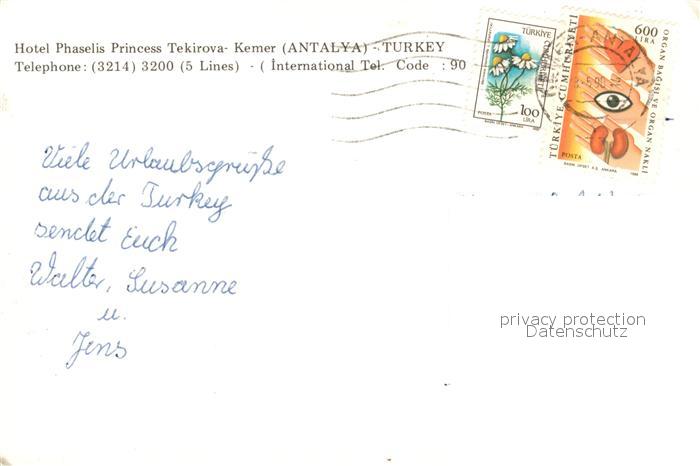 Hotel Phaselis Princess Tekirova- Kemer (ANTALYA) - TURKEY
Telephone: (3214) 3200 (5 Lines) - ( İnternational Tel. Code : 90
TÜRKİYE
100
LİRA
POSTA
600
LİRA
TÜRKİYE CUMHURİYETİ
ORGAN BAĞIŞI VE ORGAN NAKLİ
POSTA
ANTALYA
Viele Urlaubsgrüße
aus der Turkey
sendet Euch
Walter, Susanne
u.
Jens
privacy protection
Datenschutz